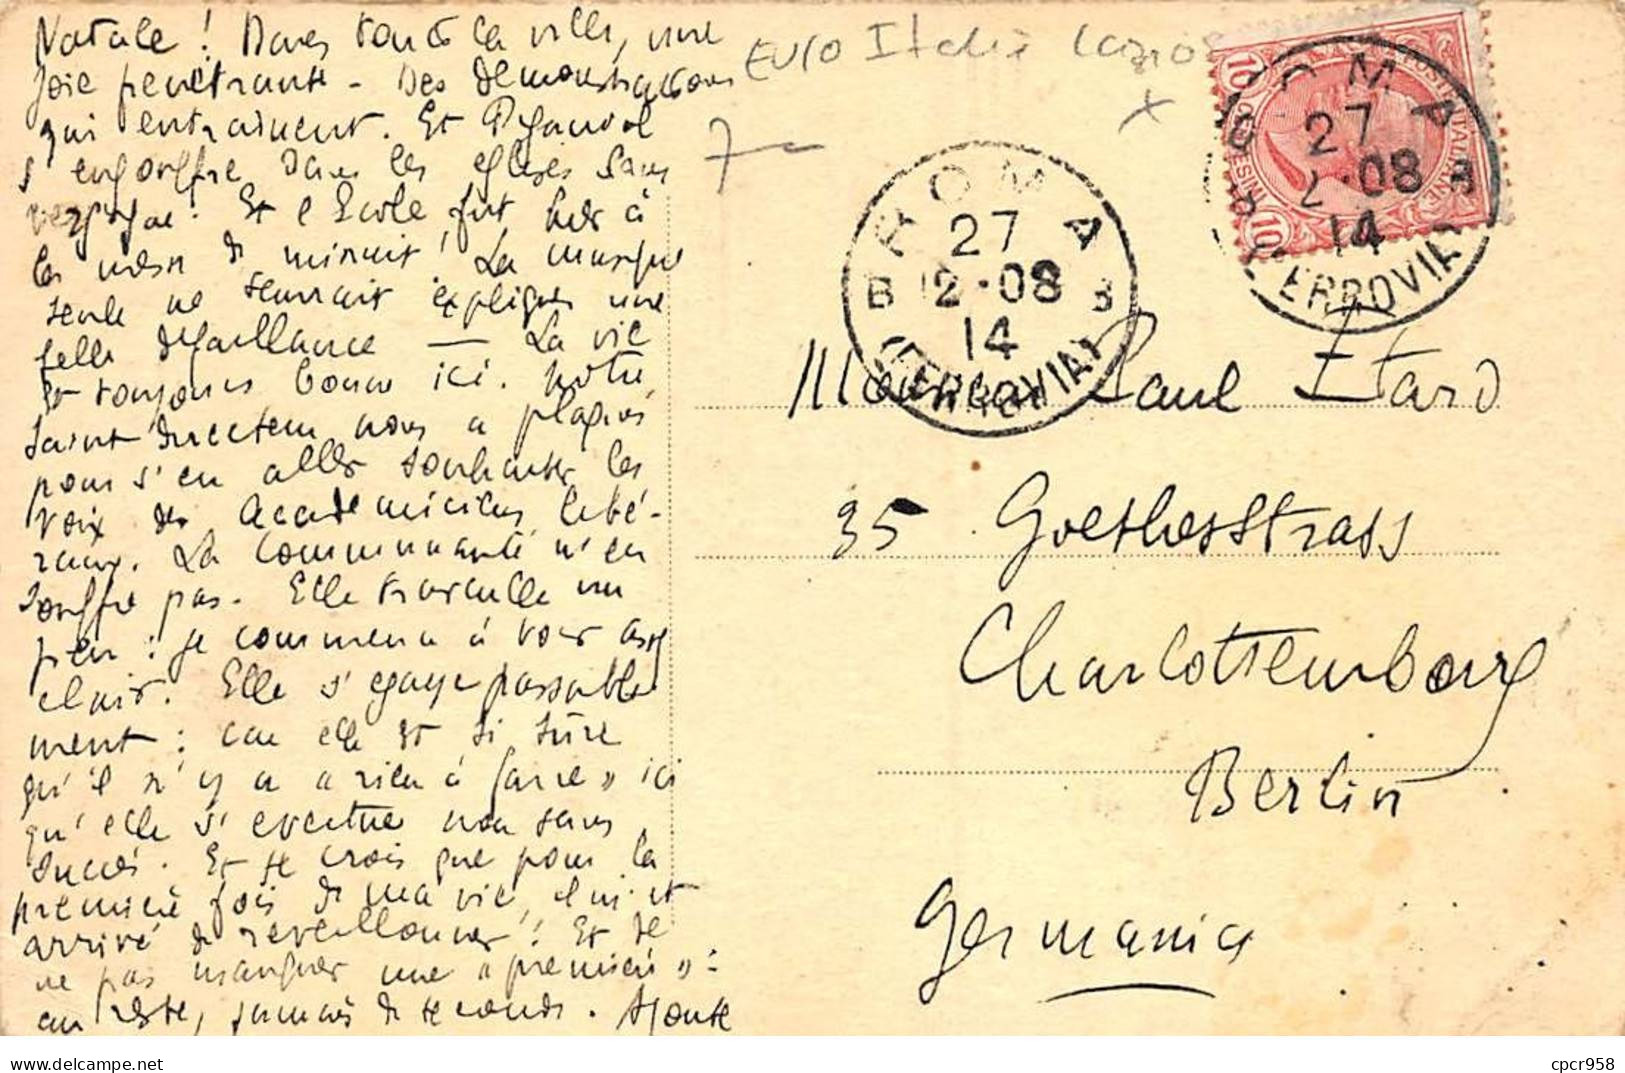 Natale ! Dans toute la ville, une
joie pénétrante - Des démonstrations
qui entrainent. Et Pégand
s'engouffre dans les églises sans
vergogne. Et l'Ecole fut hier à
la messe de minuit ! La musique
seule ne saurait expliquer une
telle défaillance — La vie
est toujours bonne ici. Notre
saint directeur nous a plaqués
pour s'en aller souhaiter les
voix des Academiciens libé-
raux. La communauté n'en
souffre pas. Elle travaille un
peu : je commence à voir assez
clair. Elle s'égaye passable
ment : car elle est si sûre
qu'il n'y a « rien à faire » ici
qu'elle s'évertue non sans
succès. Et je crois que pour la
première fois de ma vie, il m'est
arrivé de réveillonner ! Et je
ne pas manquer une « première » :
au reste, jamais de seconde. Ajoute
EURO Italie Lazio
x
7
ROMA
27
12·08
14
B B
(FERROVIA)
ROMA
27
2·08
14
B
(FERROVIA)
10 10
CENTESIMI
POSTE ITALIANE
Monsieur Paul Etard
35 Goethestrass
Charlottembourg
Berlin
Germania
delcampe.net
cpcr958